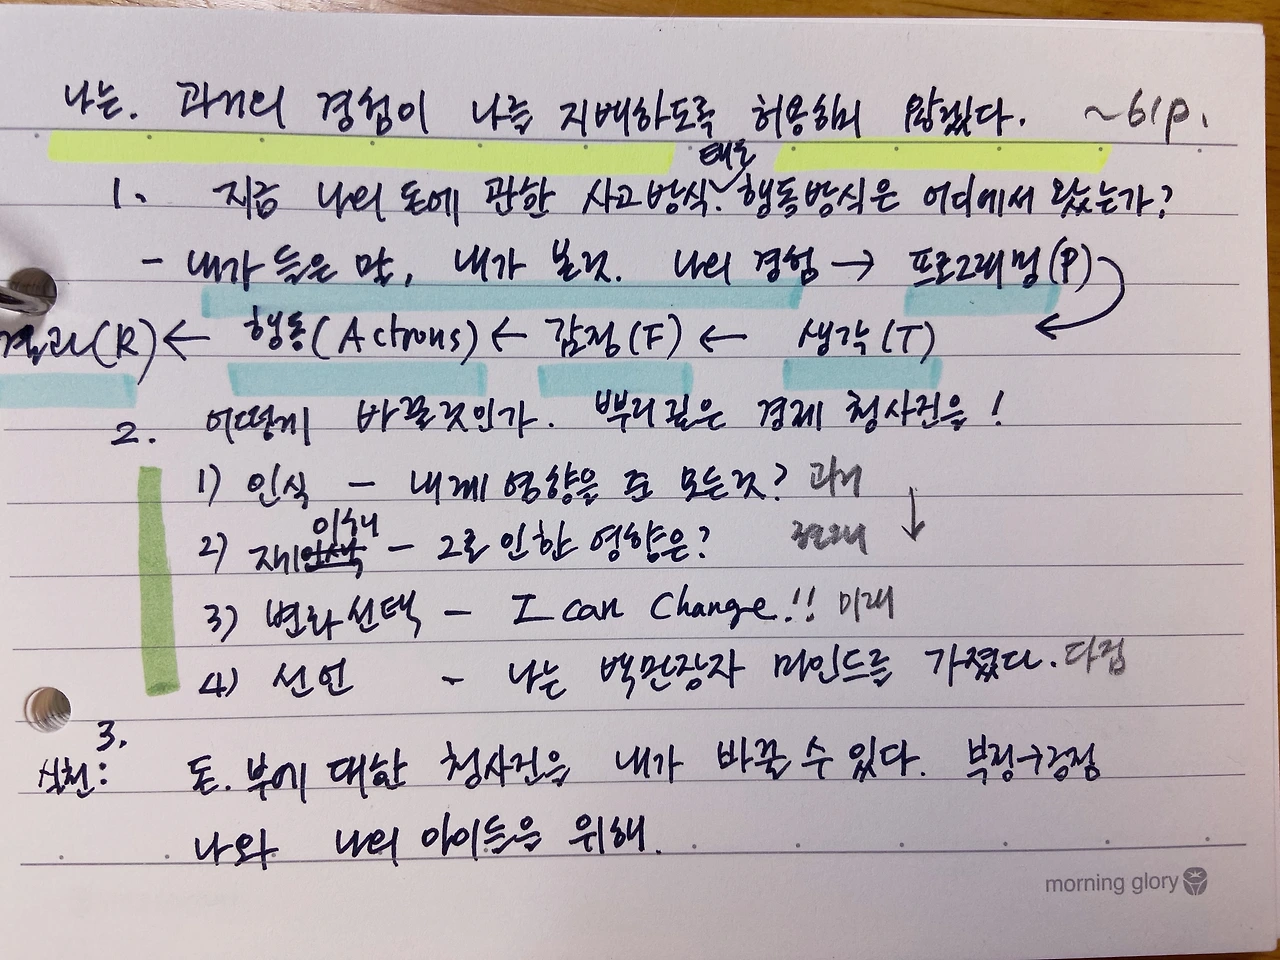 나는. 과거의 경험이 나를 지배하도록 허용하지 않겠다. ~61p.
태도
1. 지금 나의 돈에 관한 사고방식. 행동방식은 어디에서 왔는가?
- 내가 들은 말, 내가 본 것. 나의 경험 → 프로그래밍(P)
결과(R) ← 행동(Actions) ← 감정(F) ← 생각(T)
2. 어떻게 바꿀것인가. 뿌리깊은 경제 청사진을!
1) 인식 - 내게 영향을 준 모든것? 과거 ↓
이해
2) 재 - 그로 인한 영향은? 현재
3) 변화선택 - I can change!! 미래
4) 선언 - 나는 백만장자 마인드를 가졌다. 다짐
3.
실천: 돈. 부에 대한 청사진을 내가 바꿀 수 있다. 부정→긍정
나와 나의 아이들을 위해.
morning glory